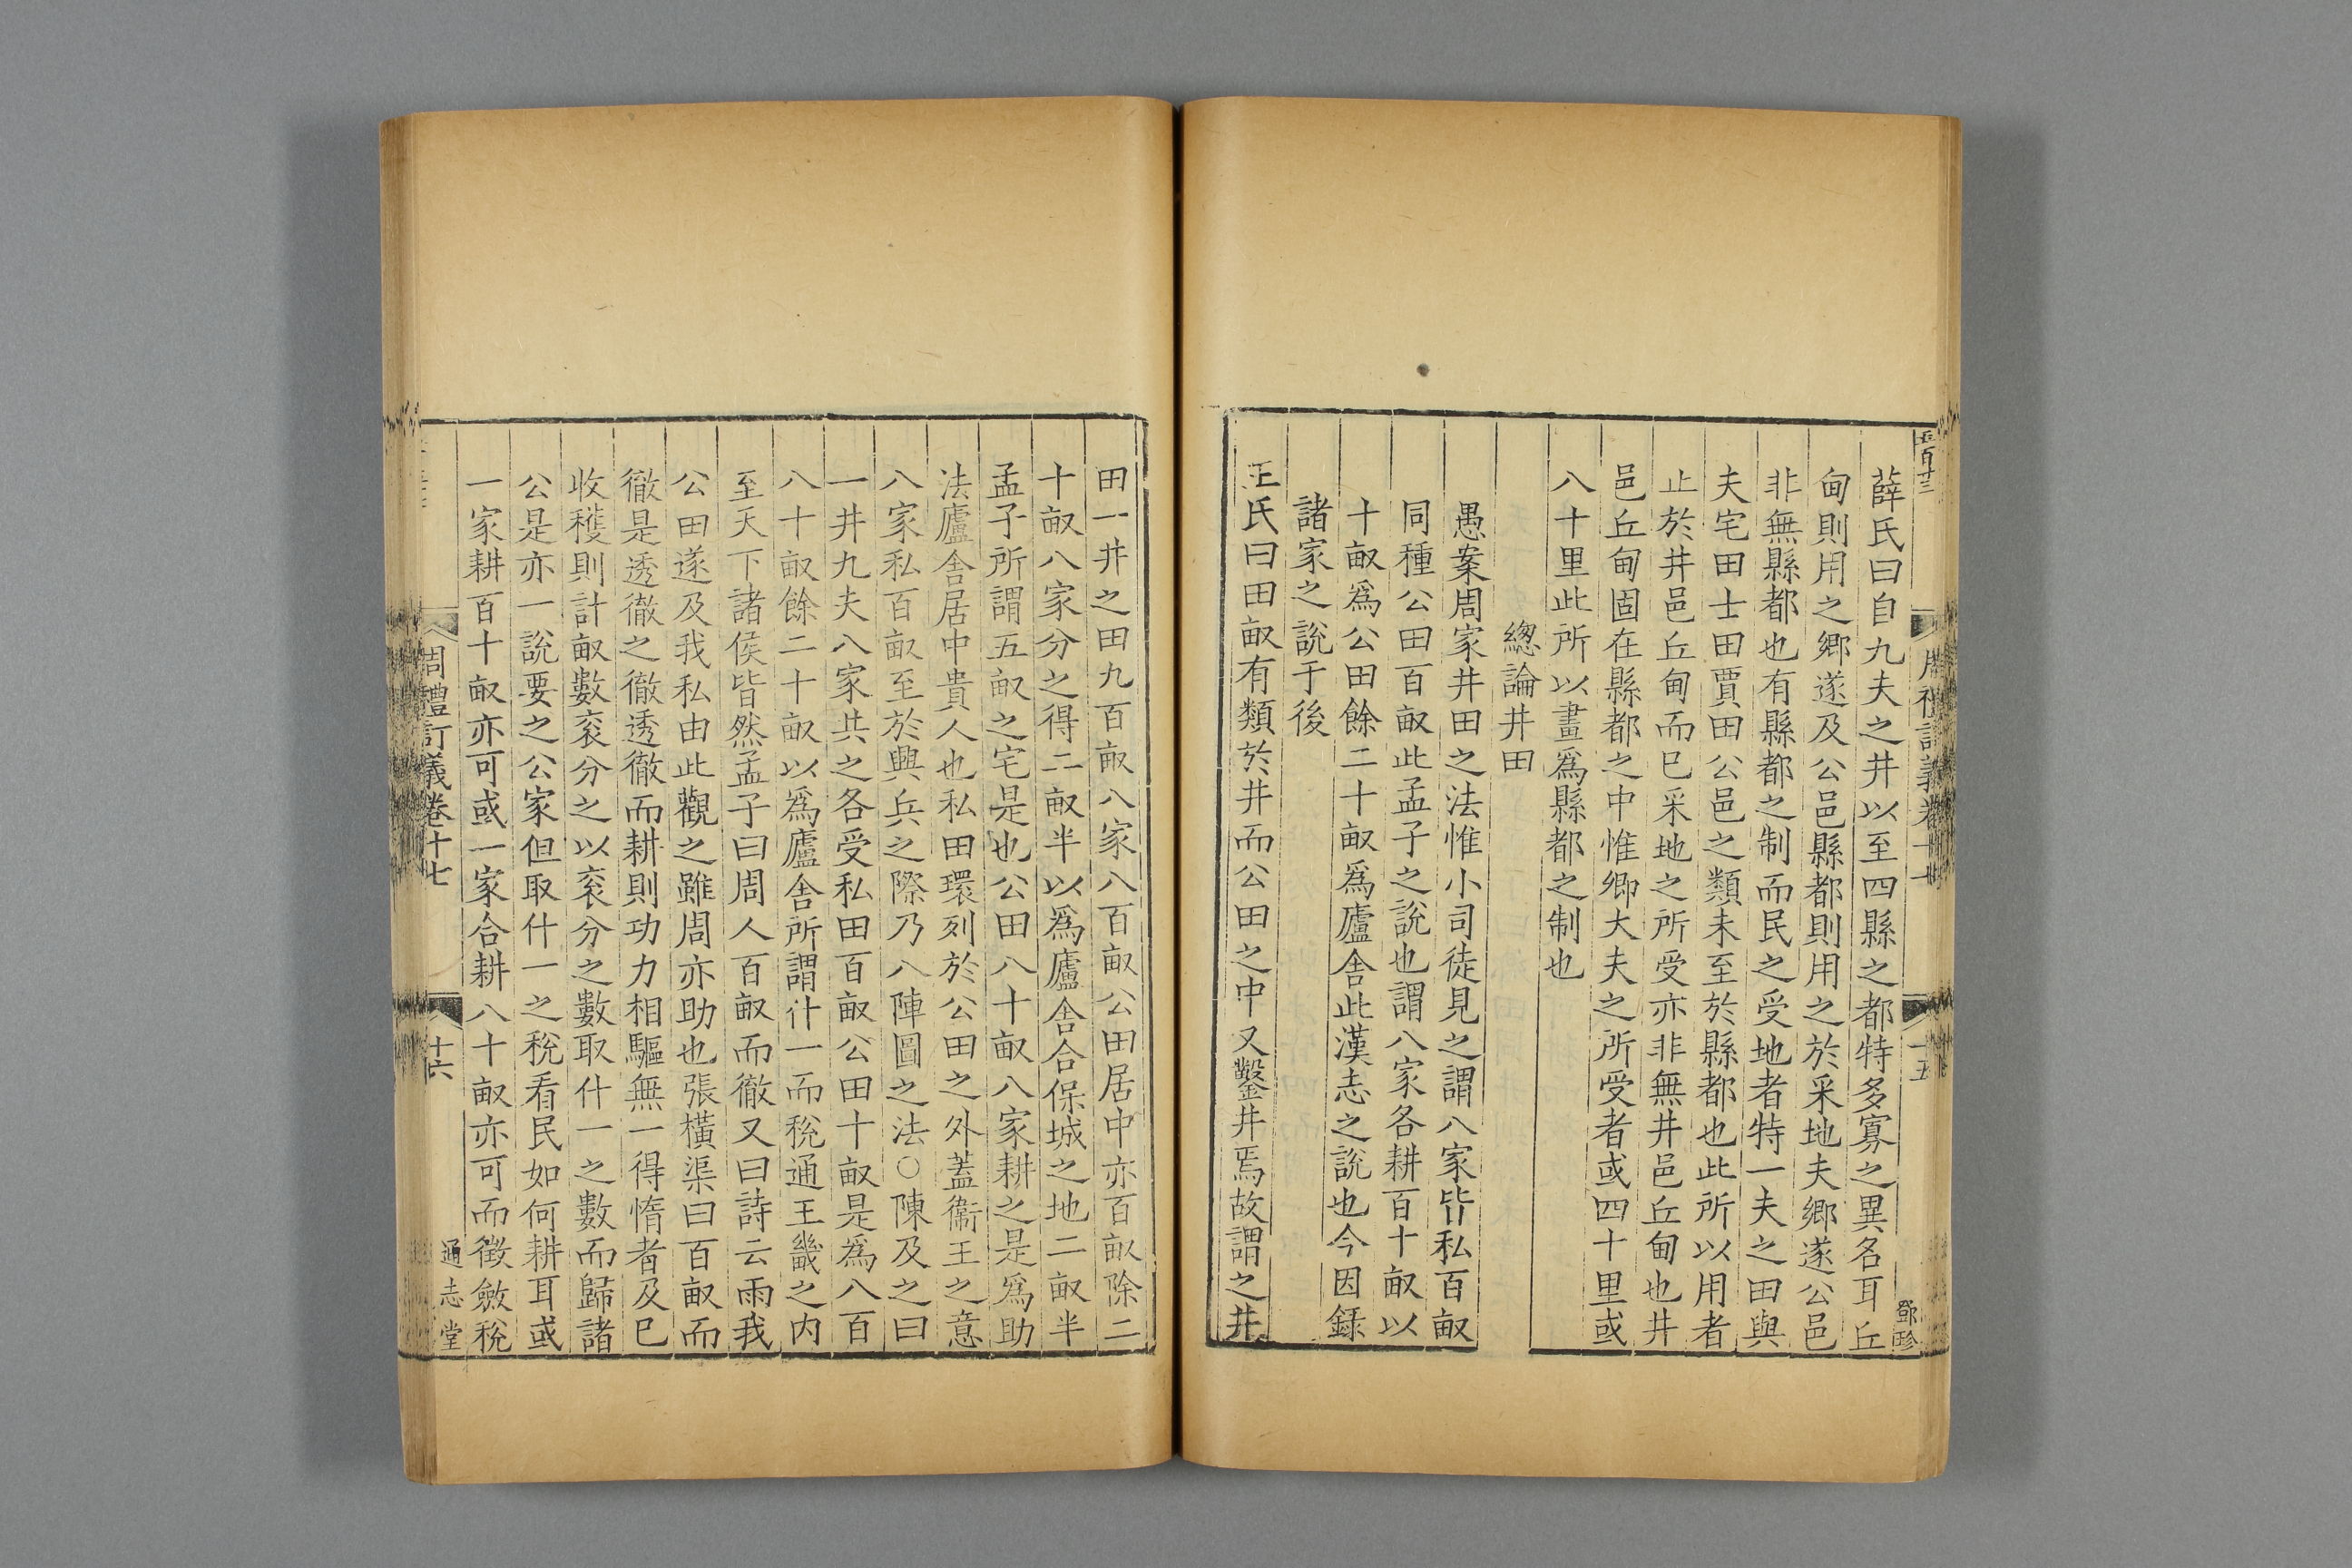 薛氏曰自九夫之井以至四縣之都特多寡之異名耳丘
甸則用之鄉遂及公邑縣都則用之於采地夫鄉遂公邑
非無縣都也有縣都之制而民之受地者特一夫之田與
夫宅田士田賈田公邑之類未至於縣都也此所以用者
止於井邑丘甸而已采地之所受亦非無井邑丘甸也井
邑丘甸固在縣都之中惟卿大夫之所受者或四十里或
八十里此所以畫爲縣都之制也
緫論井田
愚案周家井田之法惟小司徒見之謂八家皆私百畝
同種公田百畝此孟子之說也謂八家各耕百十畝以
十畝爲公田餘二十畝爲廬舎此漢志之說也今因録
諸家之說于後
王氏曰田畝有類於井而公田之中又鑿井焉故謂之井
鄧珍
田一井之田九百畝八家八百畝公田居中亦百畝除二
十畝八家分之得二畝半以爲廬舎合保城之地二畝半
孟子所謂五畝之宅是也公田八十畝八家耕之是爲助
法廬舎居中貴人也私田環列於公田之外蓋衞王之意
八家私百畝至於興兵之際乃八陣圖之法○陳及之曰
一井九夫八家共之各受私田百畝公田十畝是爲八百
八十畝餘二十畝以爲廬舎所謂什一而稅通王畿之内
至天下諸侯皆然孟子曰周人百畝而徹又曰詩云雨我
公田遂及我私由此觀之雖周亦助也張橫渠曰百畝而
徹是透徹之徹透徹而耕則功力相驅無一得惰者及已
收穫則計畝數裒分之以裒分之數取什一之數而歸諸
公是亦一說要之公家但取什一之稅看民如何耕耳或
一家耕百十畝亦可或一家合耕八十畝亦可而徵斂稅
周禮訂義卷十七
十六
通志堂